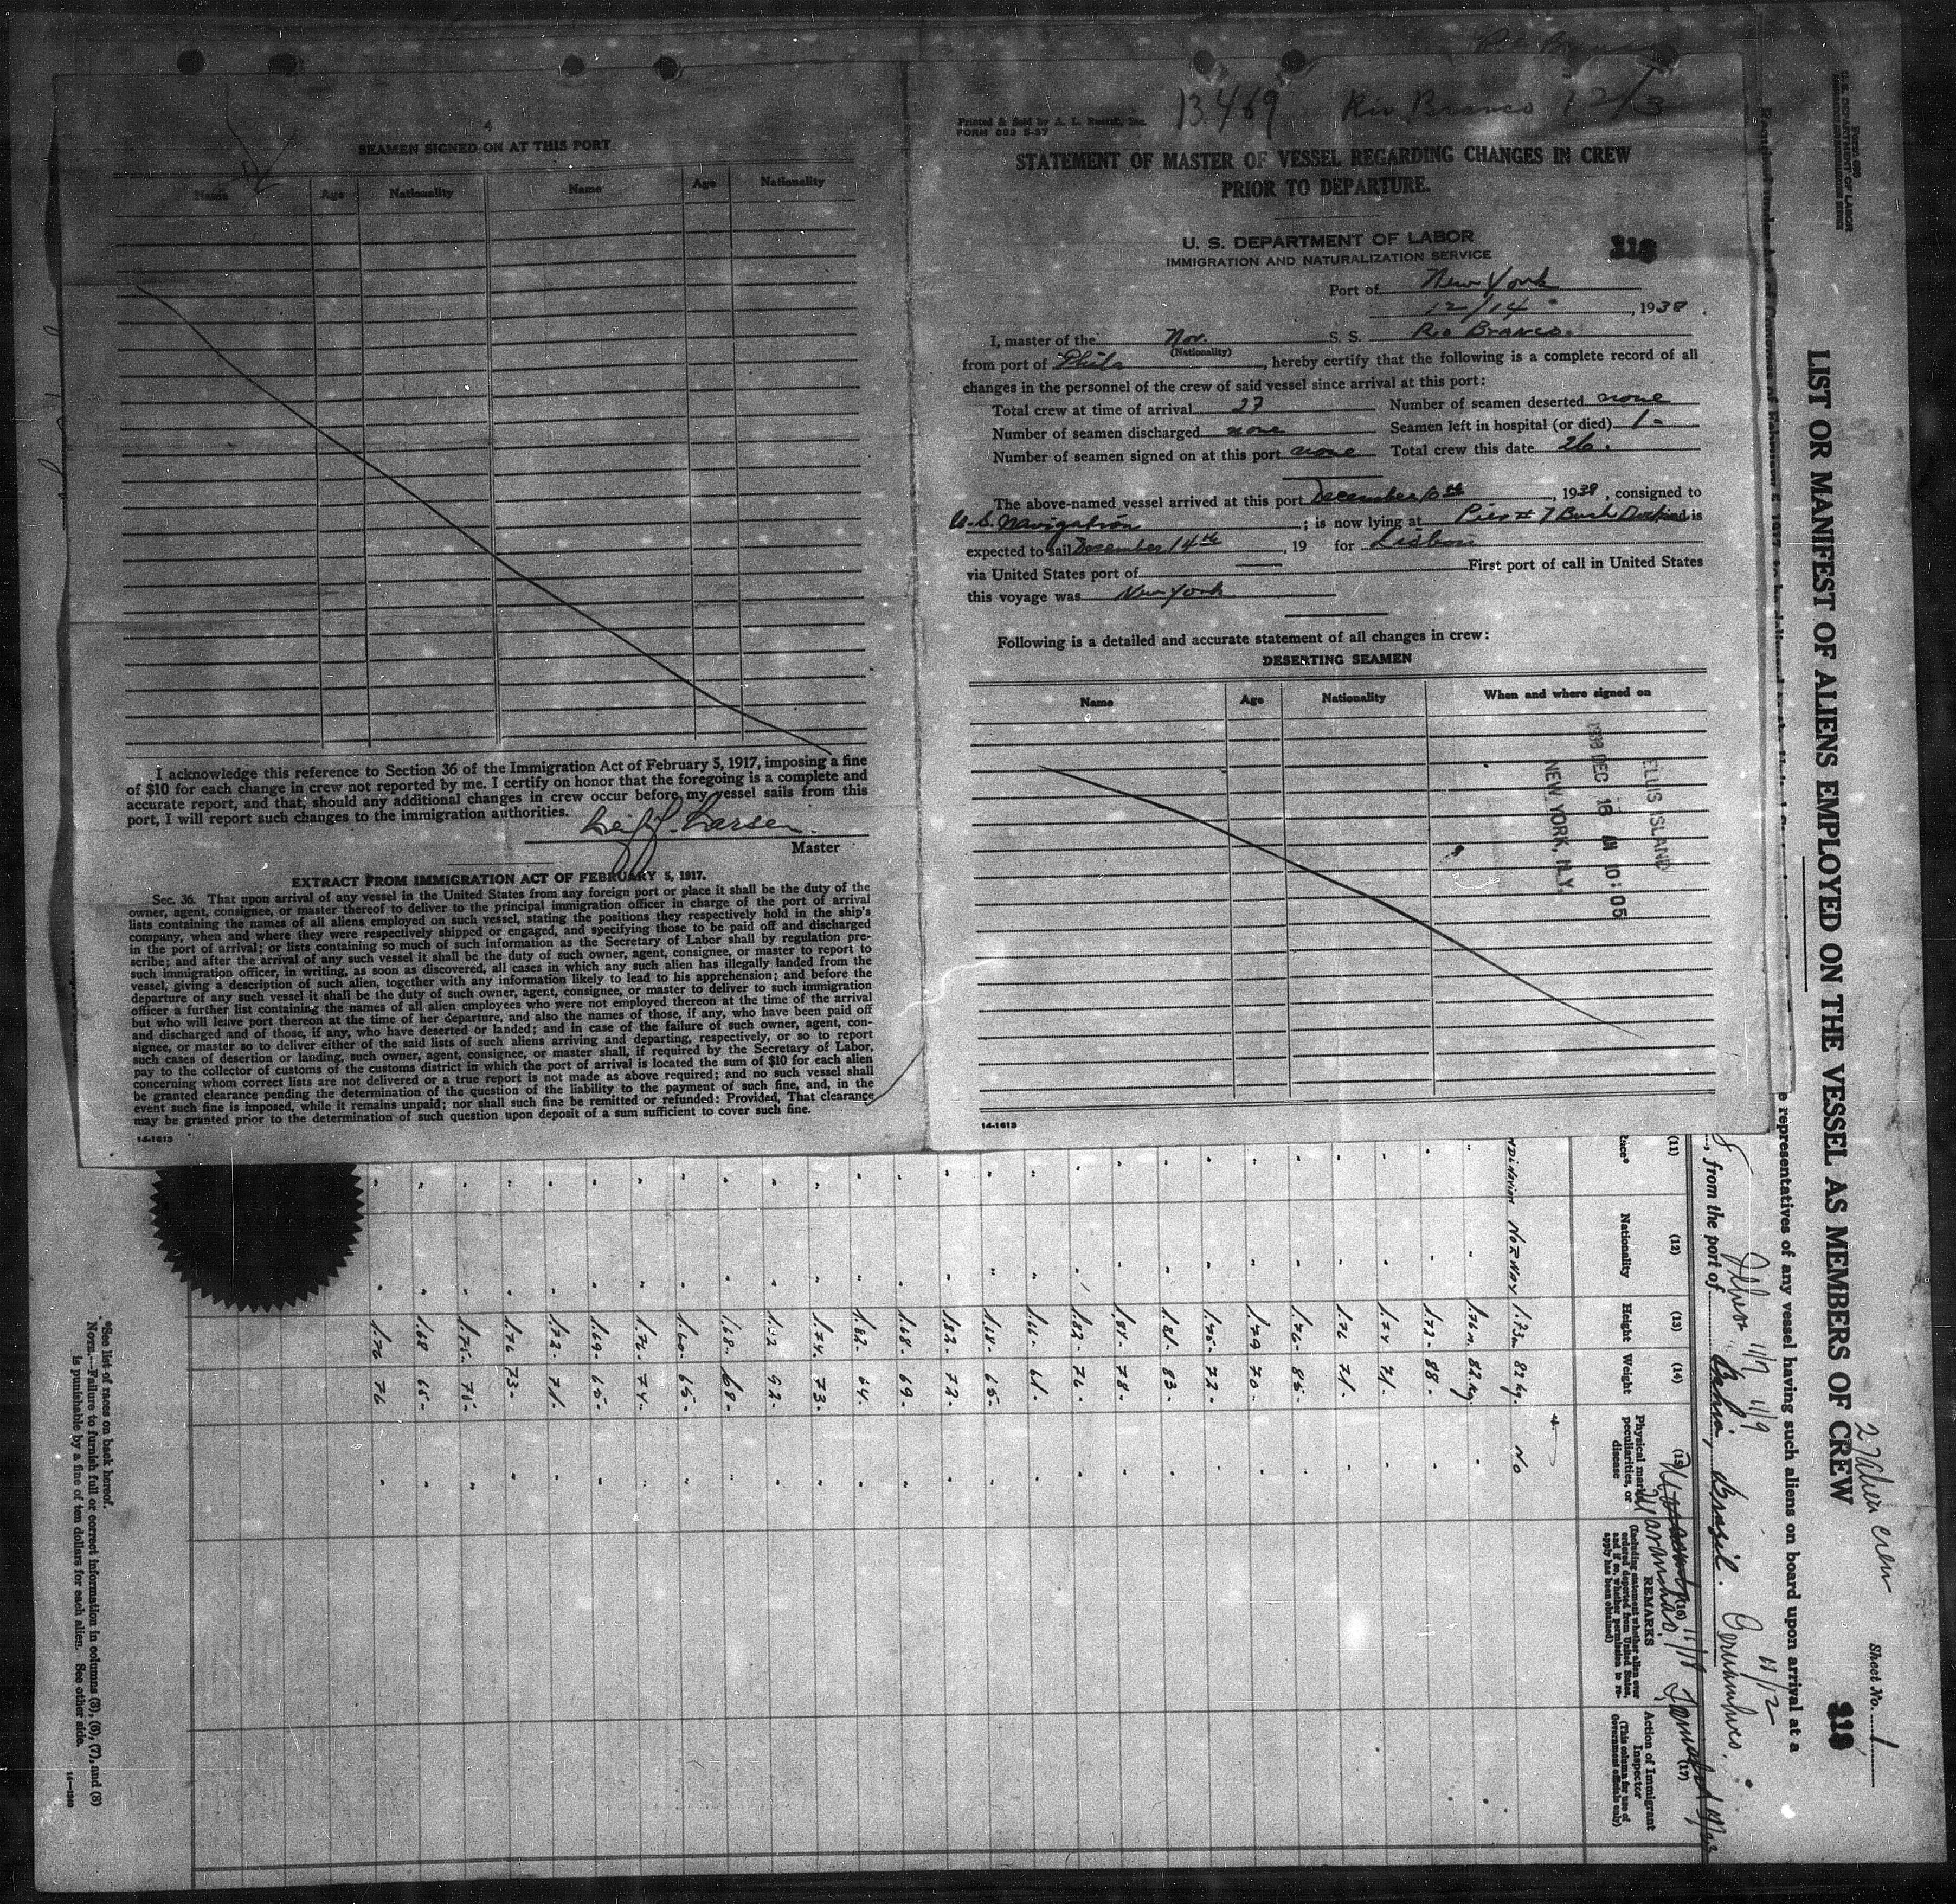 4
SEAMEN SIGNED ON AT THIS PORT
Name Age Nationality Name Age Nationality
I acknowledge this reference to Section 36 of the Immigration Act of February 5, 1917, imposing a fine
of $10 for each change in crew not reported by me. I certify on honor that the foregoing is a complete and
accurate report, and that, should any additional changes in crew occur before my vessel sails from this
port, I will report such changes to the immigration authorities.
Leif J. Larsen.
Master
EXTRACT FROM IMMIGRATION ACT OF FEBRUARY 5, 1917.
Sec. 36. That upon arrival of any vessel in the United States from any foreign port or place it shall be the duty of the
owner, agent, consignee, or master thereof to deliver to the principal immigration officer in charge of the port of arrival
lists containing the names of all aliens employed on such vessel, stating the positions they respectively hold in the ship's
company, when and where they were respectively shipped or engaged, and specifying those to be paid off and discharged
in the port of arrival; or lists containing so much of such information as the Secretary of Labor shall by regulation pre-
scribe; and after the arrival of any such vessel it shall be the duty of such owner, agent, consignee, or master to report to
such immigration officer, in writing, as soon as discovered, all cases in which any such alien has illegally landed from the
vessel, giving a description of such alien, together with any information likely to lead to his apprehension; and before the
departure of any such vessel it shall be the duty of such owner, agent, consignee, or master to deliver to such immigration
officer a further list containing the names of all alien employees who were not employed thereon at the time of the arrival
but who will leave port thereon at the time of her departure, and also the names of those, if any, who have been paid off
and discharged and of those, if any, who have deserted or landed; and in case of the failure of such owner, agent, con-
signee, or master so to deliver either of the said lists of such aliens arriving and departing, respectively, or so to report
such cases of desertion or landing, such owner, agent, consignee, or master shall, if required by the Secretary of Labor,
pay to the collector of customs of the customs district in which the port of arrival is located the sum of $10 for each alien
concerning whom correct lists are not delivered or a true report is not made as above required; and no such vessel shall
be granted clearance pending the determination of the question of the liability to the payment of such fine, and, in the
event such fine is imposed, while it remains unpaid; nor shall such fine be remitted or refunded: Provided, That clearance
may be granted prior to the determination of such question upon deposit of a sum sufficient to cover such fine.
14-1613
13469 Rio Branco 12/3
Printed & Sold by A. L. Russell, Inc.
FORM 689 5-37
STATEMENT OF MASTER OF VESSEL REGARDING CHANGES IN CREW
PRIOR TO DEPARTURE.
U. S. DEPARTMENT OF LABOR
IMMIGRATION AND NATURALIZATION SERVICE
Port of New York
12/14, 1938.
I, master of the Nor. S. S. Rio Branco.
(Nationality)
from port of Phila, hereby certify that the following is a complete record of all
changes in the personnel of the crew of said vessel since arrival at this port:
Total crew at time of arrival 27 Number of seamen deserted none
Number of seamen discharged none Seamen left in hospital (or died) 1-
Number of seamen signed on at this port none Total crew this date 26.
The above-named vessel arrived at this port December 10th, 1938, consigned to
U.S. Navigation; is now lying at Pier # 7 Bush Dock and is
expected to sail December 14th, 19 for Lisbon
via United States port of First port of call in United States
this voyage was New York
Following is a detailed and accurate statement of all changes in crew:
DESERTING SEAMEN
Name Age Nationality When and where signed on
ELLIS ISLAND
1938 DEC 16 AM 10:05
NEW YORK, N.Y.
14-1613
U.S. DEPARTMENT OF LABOR
LIST OR MANIFEST OF ALIENS EMPLOYED ON THE VESSEL AS MEMBERS OF CREW
27 Alien crew
Sheet No. 1
representatives of any vessel having such aliens on board upon arrival at a
from the port of Bahia, Brasil.
11/7 11/9 11/12 11/18
(11) (12) (13) (14) (15) (16) (17)
Nationality Height Weight
Physical marks, peculiarities, or disease
REMARKS
(Including statement whether alien ever ordered deported from United States, and if so, whether permission to reapply has been obtained)
Action of Immigrant Inspector
(This column for use of Government officials only)
NORWAY 1.73m 82 kg. No
1.76m. 82 kg.
1.73- 88-
1.74 71-
1.76 71-
1.76- 85-
1.79 70-
1.75- 72-
1.81- 83-
1.81- 78-
1.82- 76-
1.66- 61-
1.68- 65-
1.82- 72-
1.68- 69-
1.62- 64.
1.74. 73-
92-
1.68- 68-
1.60- 65-
1.72- 74-
1.69- 65-
1.72- 71-
1.76 73-
1.75- 75-
1.68 65-
1.76 76
*See list of races on back hereof.
NOTE.—Failure to furnish full or correct information in columns (3), (6), (7), and (8)
is punishable by a fine of ten dollars for each alien. See other side.